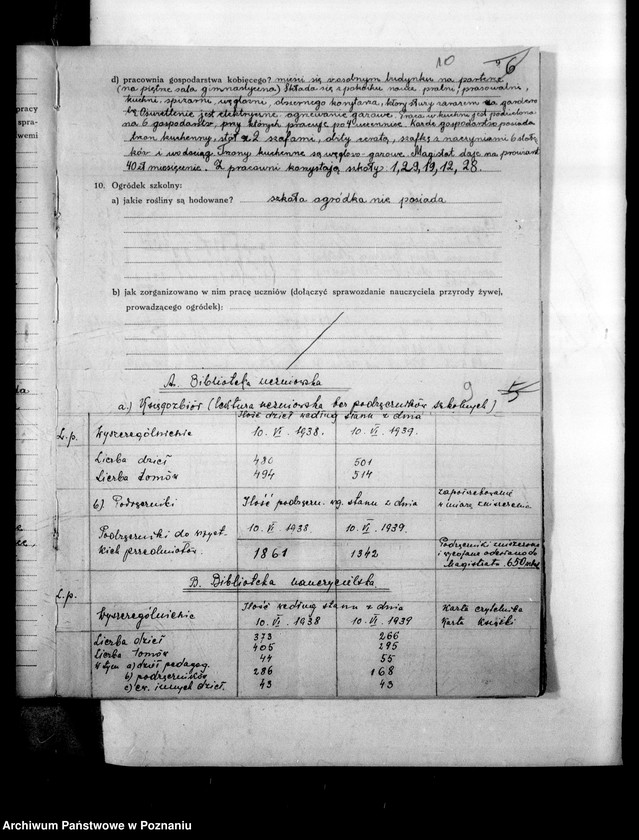 10 6
d) pracownia gospodarstwa kobiecego? mieści się w osobnym budynku na parterze
(na piętrze sala gimnastyczna) Składa się z pokoiku nauk, pralni, prasowalni,
kuchni, spiżarni, węglarni, obszernego korytarza, który służy zarazem za gardero
bę. Oświetlenie jest elektryczne, ogrzewanie gazowe. Praca w kuchni jest podzielona
na 6 gospodarstw, przy których pracuje po uczennice. Każde gospodarstwo posiada
kuchenny, stół z 2 szafami, obity ceratą, szafkę z naczyniami 6 stoł
ków i wodociąg. Trony kuchenne są węglowo-gazowe. Magistrat daje na prowiant
40 zł miesięcznie. Z pracowni korzystają szkoły 1, 2, 9, 19, 12, 28.
10. Ogródek szkolny:
a) jakie rośliny są hodowane? szkoła ogródka nie posiada
b) jak zorganizowano w nim pracę uczniów (dołączyć sprawozdanie nauczyciela przyrody żywej,
prowadzącego ogródek):
pracy
spra-
wemi
A. Biblioteka uczniowska
9 5
a.) Księgozbiór (lektura uczniowska bez podręczników szkolnych)
L.p. Wyszczególnienie Ilość dzieł według stanu z dnia
10. VI. 1938. 10. VI. 1939.
Liczba dzieł 480 501
Liczba tomów 494 514
b) Podręczniki Ilość podręczn. wg. stanu z dnia zapotrzebowanie
w miarę zniszczenia
Podręczniki do wszyst- 10. VI. 1938 10. VI. 1939.
kich przedmiotów. 1861 1342 Podręczniki zniszczone
i wycofane odesłano do
Magistratu 650
B. Biblioteka nauczycielska
L.p. Wyszczególnienie Ilość według stanu z dnia Karta czytelnika
10. VI. 1938 10. VI. 1939 Karta książki
Liczba dzieł 373 266
Liczba tomów 405 295
W tym a) dzieł pedagog. 44 55
b) podręczników 286 168
c) ex. innych dzieł. 43 43
Archiwum Państwowe w Poznaniu